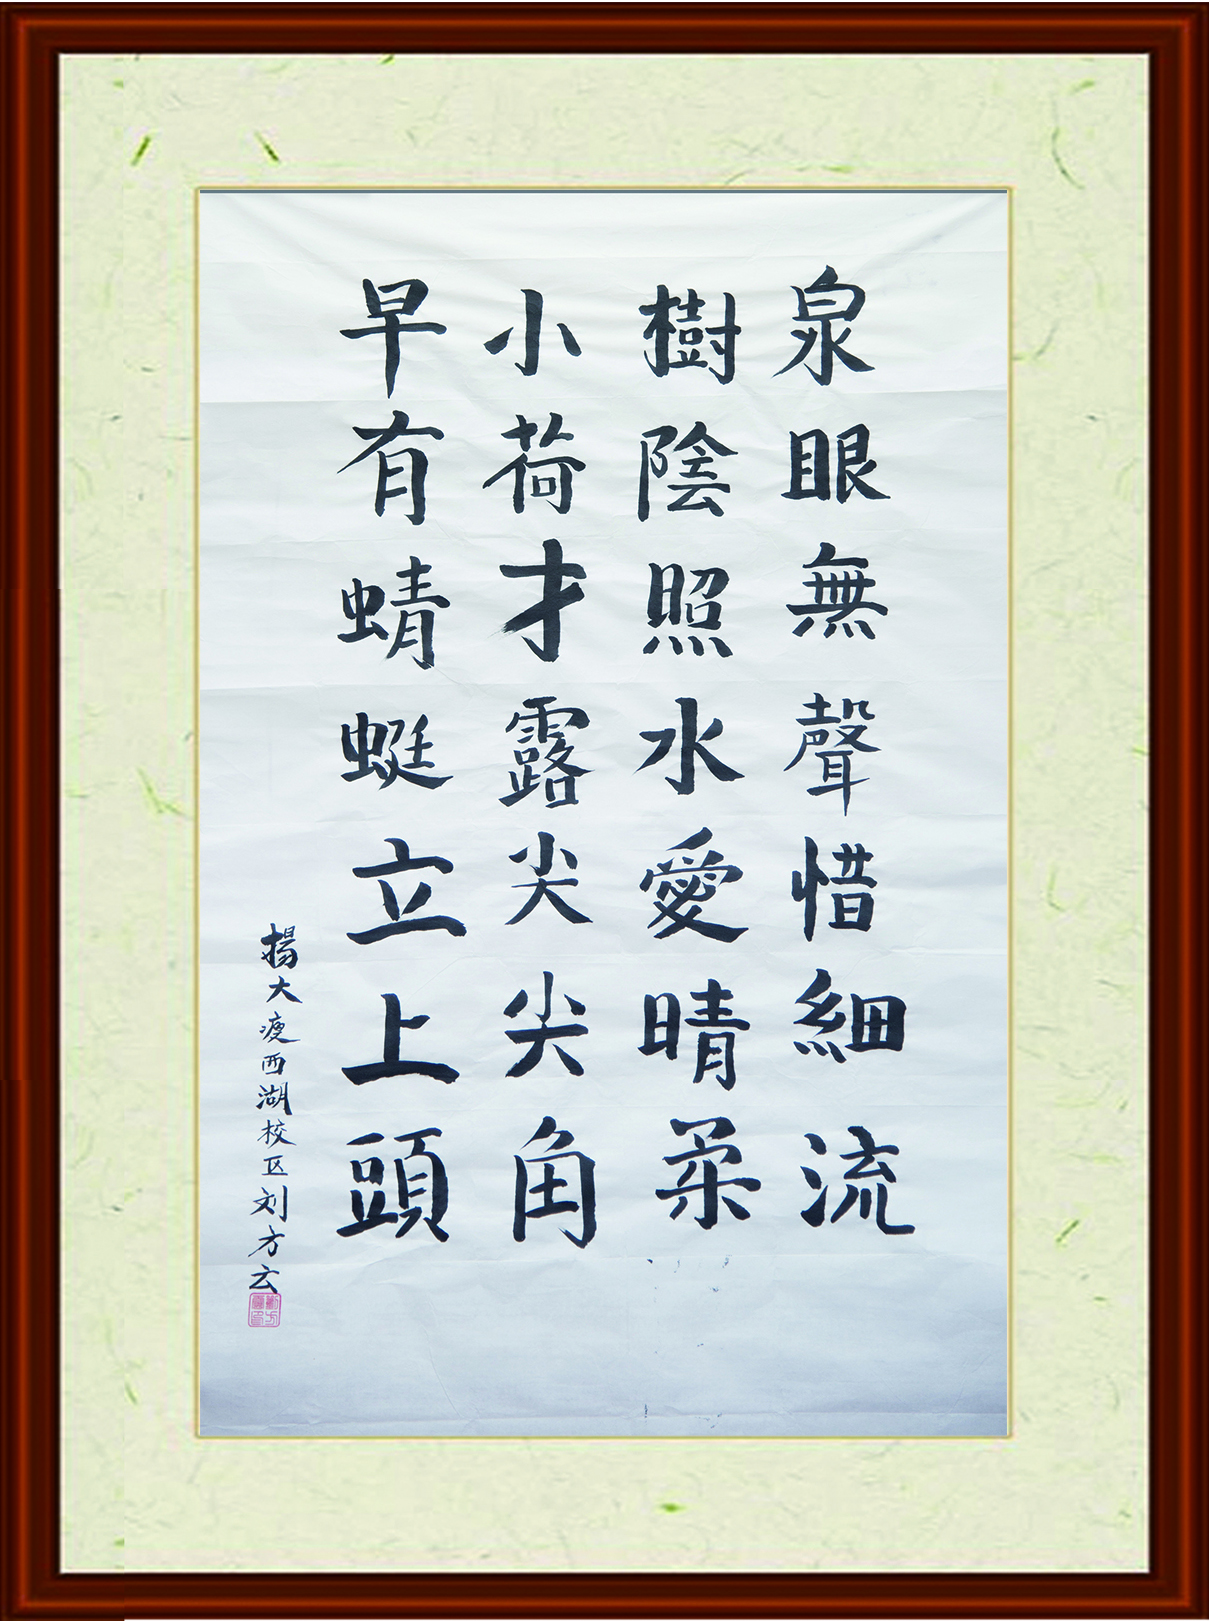 泉眼無聲惜細流
樹陰照水愛晴柔
小荷才露尖尖角
早有蜻蜓立上頭
揚大瘦西湖校区刘方云